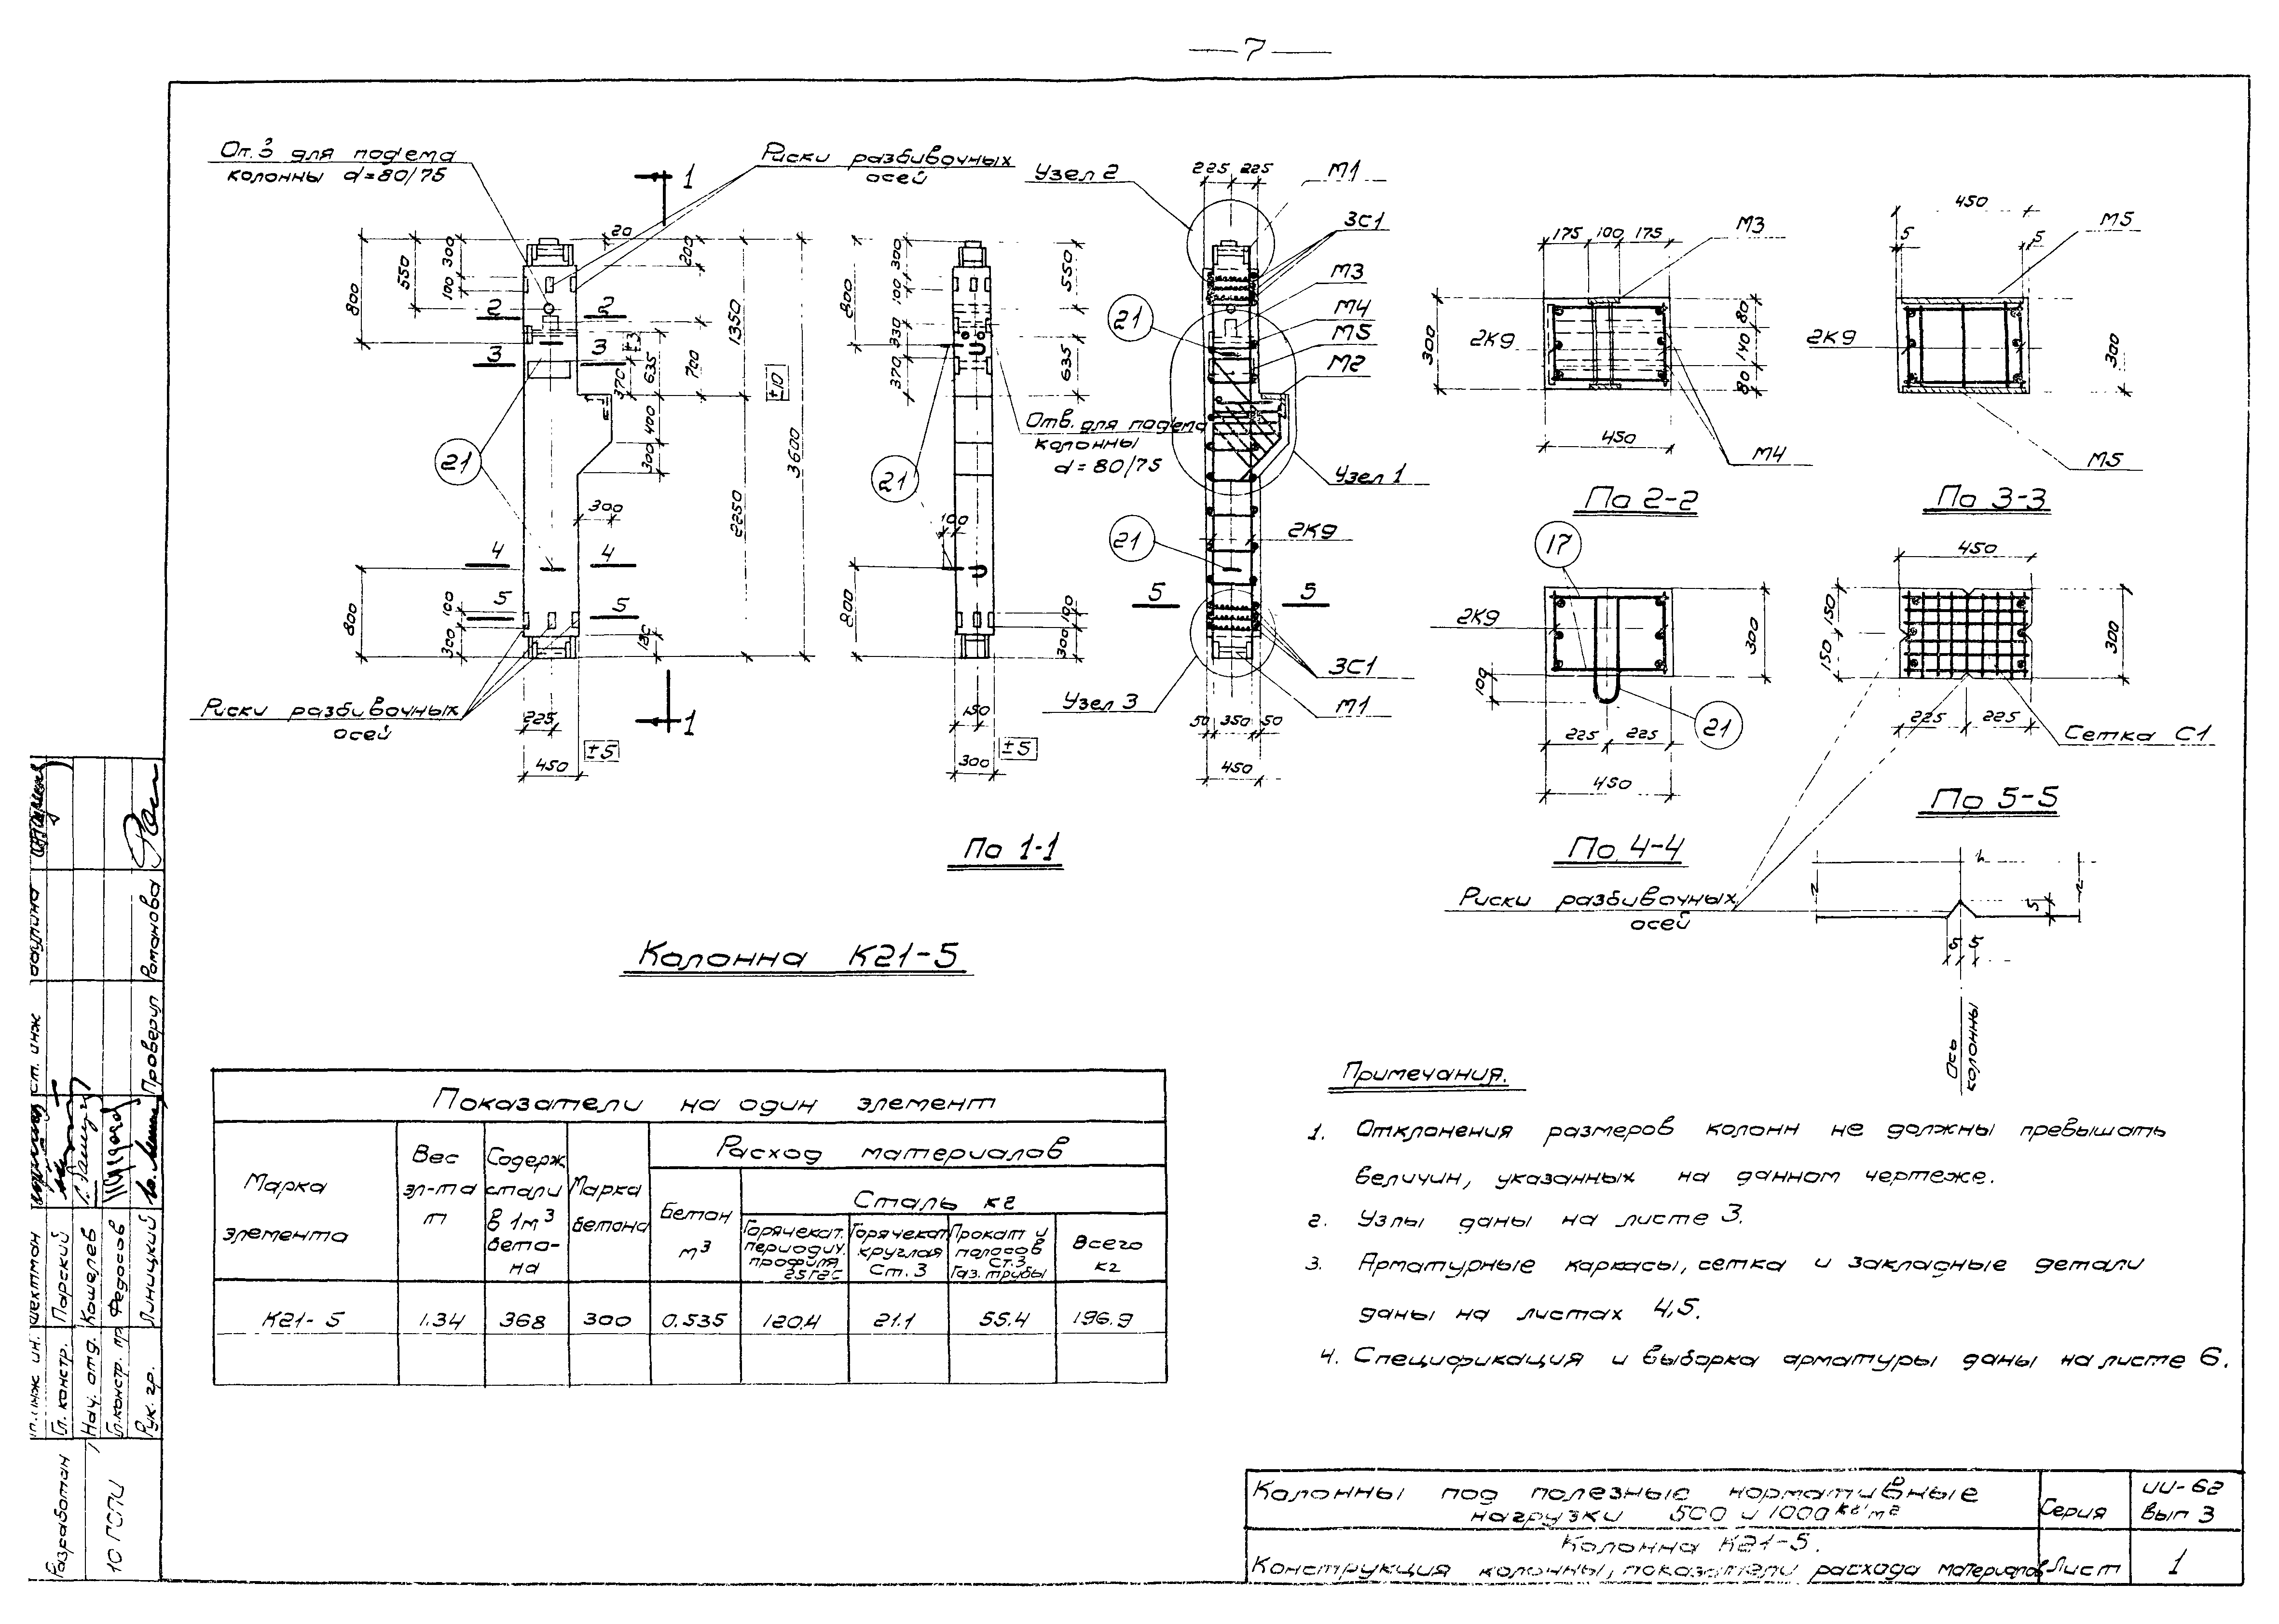 —7—
От. 3 для подъема
колонны d=80/75
Риски разбивочных
осей
Узел 2
1
20
300
550
800
100
200
1350
±10
2
2
3
3
370
635
700
400
300
3600
2250
21
300
4
4
5
5
800
100
300
Риски разбивочных
осей
225
450
±5
1
300
800
100
330
370
550
635
Отв. для подъема
колонны
d=80/75
21
100
800
100
300
150
300
±5
225 225
М1
3С1
М3
М4
М5
М2
21
Узел 1
21
2К9
5
5
3С1
М1
Узел 3
50 350 50
450
По 1-1
175 100 175
М3
300
2К9
80
140
80
450
М4
По 2-2
450
М5
5
5
2К9
300
М5
По 3-3
17
2К9
300
100
21
225 225
450
По 4-4
450
150
150
300
225 225
Сетка С1
По 5-5
Риски разбивочных
осей
5
5 5
Ось
колонны
Колонна К21-5
Показатели на один элемент
Марка
элемента
Вес
эл-та
т
Содерж
стали
в 1м³
бето-
на
Марка
бетона
Расход материалов
Бетон
м³
Сталь кг
Горячекат.
периодич.
профиля
25Г2С
Горячекат
круглая
Ст. 3
Прокат и
полосов
Ст.3
Газ. трубы
Всего
кг
К21-5 1.34 368 300 0.535 120.4 21.1 55.4 196.9
Примечания.
1. Отклонения размеров колонн не должны превышать
величин, указанных на данном чертеже.
2. Узлы даны на листе 3.
3. Арматурные каркасы, сетка и закладные детали
даны на листах 4,5.
4. Спецификация и выборка арматуры даны на листе 6.
Колонны под полезные нормативные
нагрузки 500 и 1000 кг/м²
Серия
ИИ-62
Вып 3
Колонна К21-5.
Конструкция колонны, показатели расхода материалов
Лист
1
Разработан
10 ГСПИ
Шехтман
Гл. констр. Парский
Нач. отд. Кошелев
Гл.констр. пр. Федосов
Рук. гр. Линицкий
Ст. инж
Проверил Романова